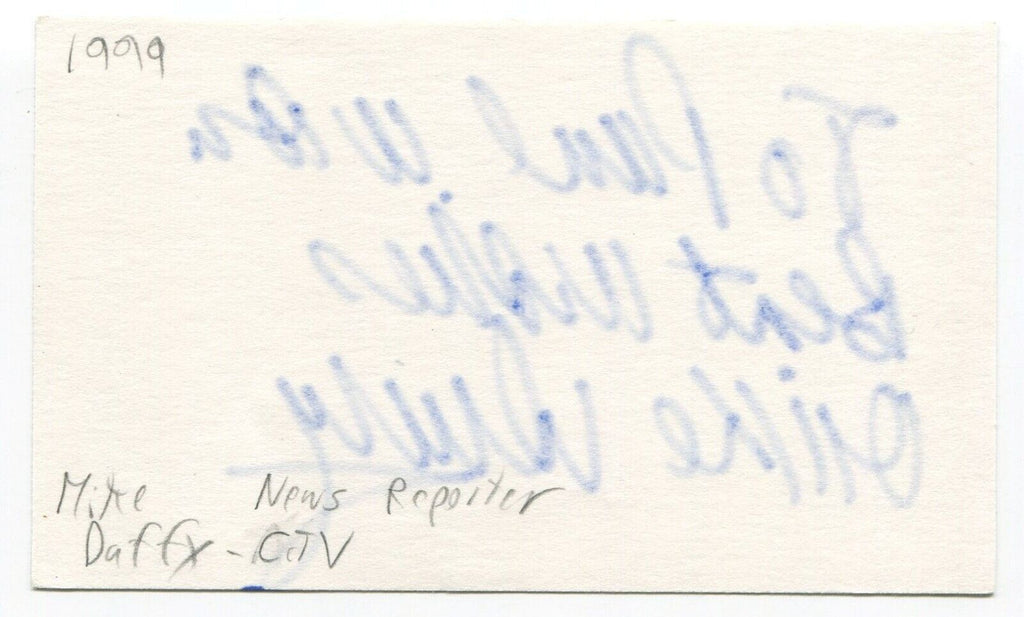 1999
To Paul
Best Wishes
Mike
Mike News Reporter
Daffy - CTV